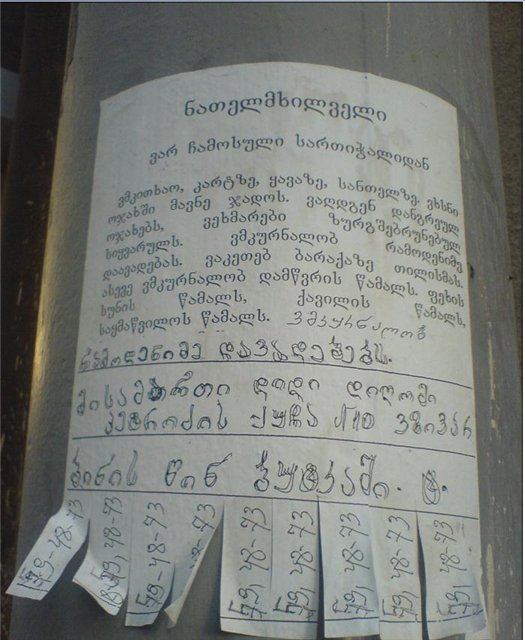 ნათელმხილველი
ვარ ჩამოსული სართიჭალიდან
ვმკითხაო, კარტზე, ყავაზე, სანთელზე. ვხსნი
ოჯახში მავნე ჯადოს. ვაღდგენ დანგრეულ
ოჯახებს, ვეხმარები ზურგშებრუნებულ
სიყვარულს. ვმკურნალობ რამოდენიმე
დაავადებას. ვაკეთებ ბარაქაზე თილისმას.
ასევე ვმკურნალობ დამწვრის წამალს. ფეხის
სუნის წამალს, ქავილის წამალს,
საყმაწვილოს წამალს. ვმკურნალობ
რამოდენიმე დავადებებს.
მისამართი დიდი დიღომი
პეტრიძის ქუჩა №10 ვზივარ
ბინის წინ ბუტკაში. ტ.
59-48-73
59-48-73
59-48-73
48-73
59-48-73
59-48-73
59-48-73
59-48-73
59-48-73